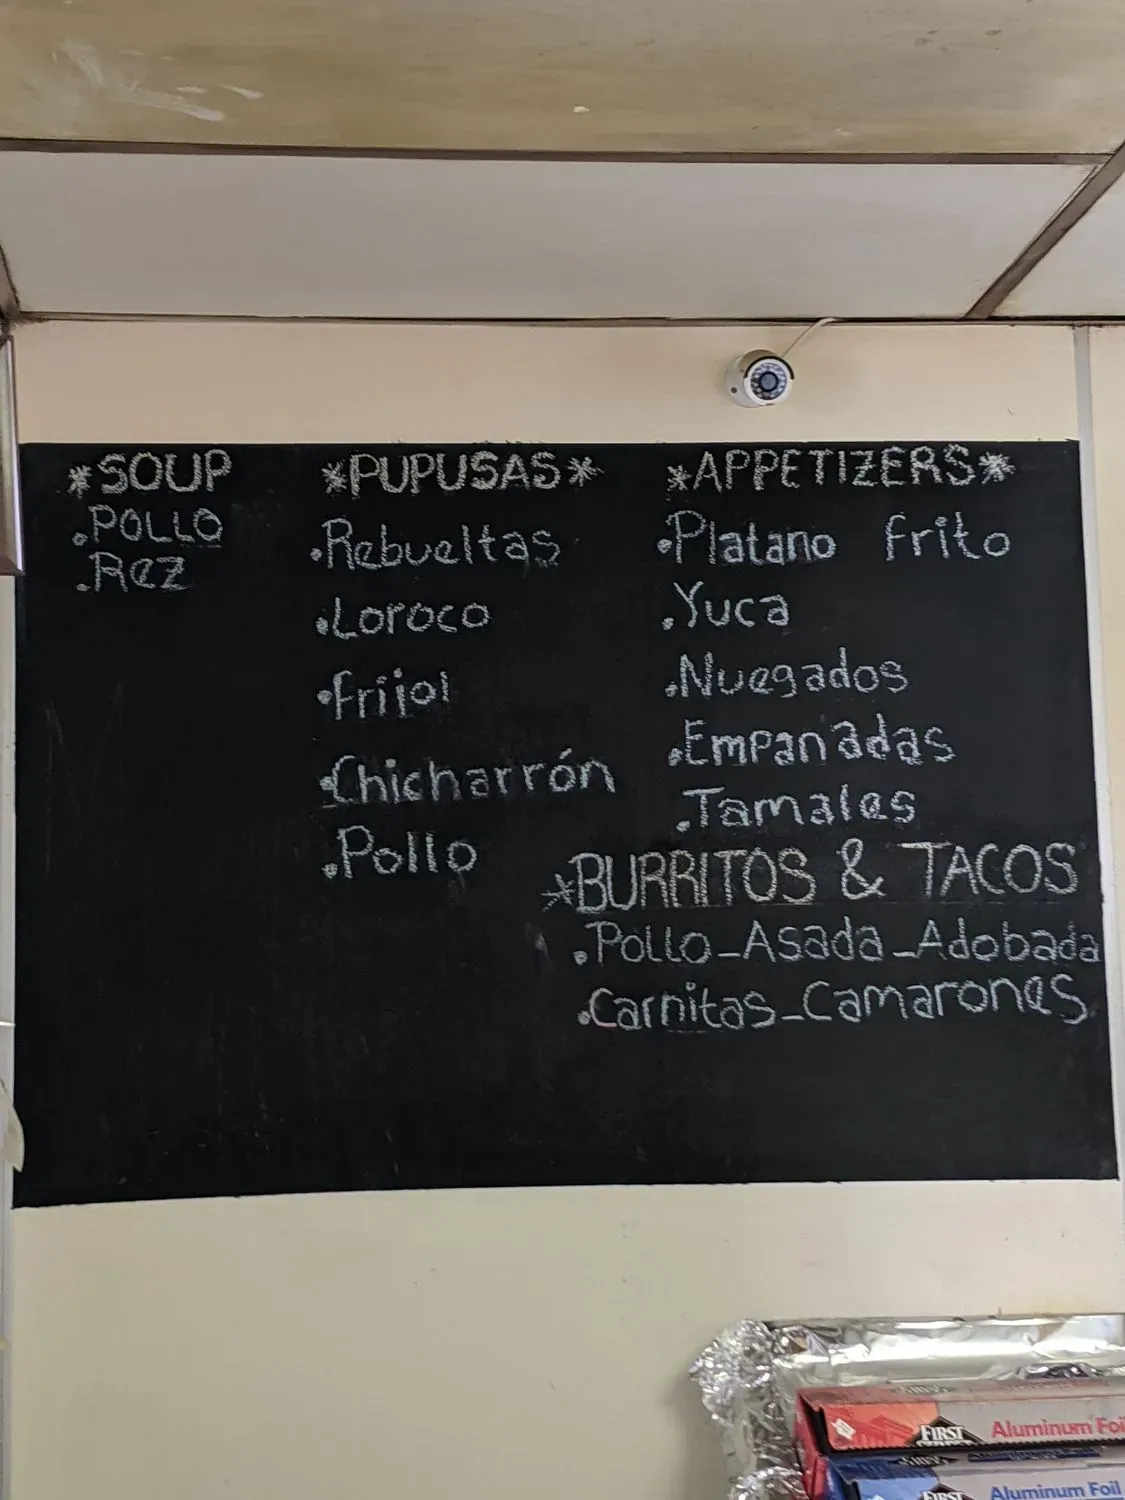 *SOUP
.POLLO
.Rez
*PUPUSAS*
.Rebueltas
.Loroco
.Frijol
.Chicharrón
.Pollo
*APPETIZERS*
.Platano frito
.Yuca
.Nuegados
.Empanadas
.Tamales
*BURRITOS & TACOS
.Pollo-Asada-Adobada
.Carnitas-Camarones
FIRST
Aluminum Foi
Aluminum Foil